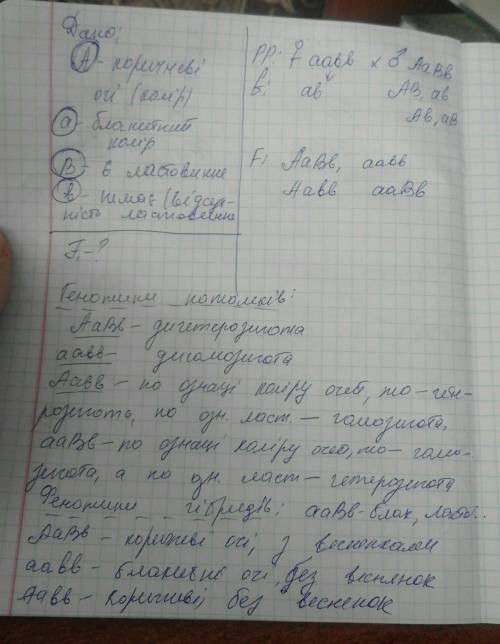 Дано:
А - коричневі
очі (колір)
а - блакитний
колір
В - є ластовиння
в - немає (відсут-
ність ластовиння
F₁ - ?
PP: ♀ аавв х ♂ АаВв
G: ав АВ, ав
Ав, аВ
F₁ АаВв, аавв
Аавв ааВв
Генотипи потомків:
АаВв - дигетерозигота
аавв - дигомозигота
Аавв - по ознаці коліру очей, то - гете-
розигота, по озн. ласт. - гомозигота,
ааВв - по ознаці коліру очей, то - гомо-
зигота, а по озн. ласт - гетерозигота
Фенотипи гібридів: ааВв - блак,
АаВв - коричневі очі, з веснянками
аавв - блакитні очі, без веснянок
Аавв - коричневі, без веснянок